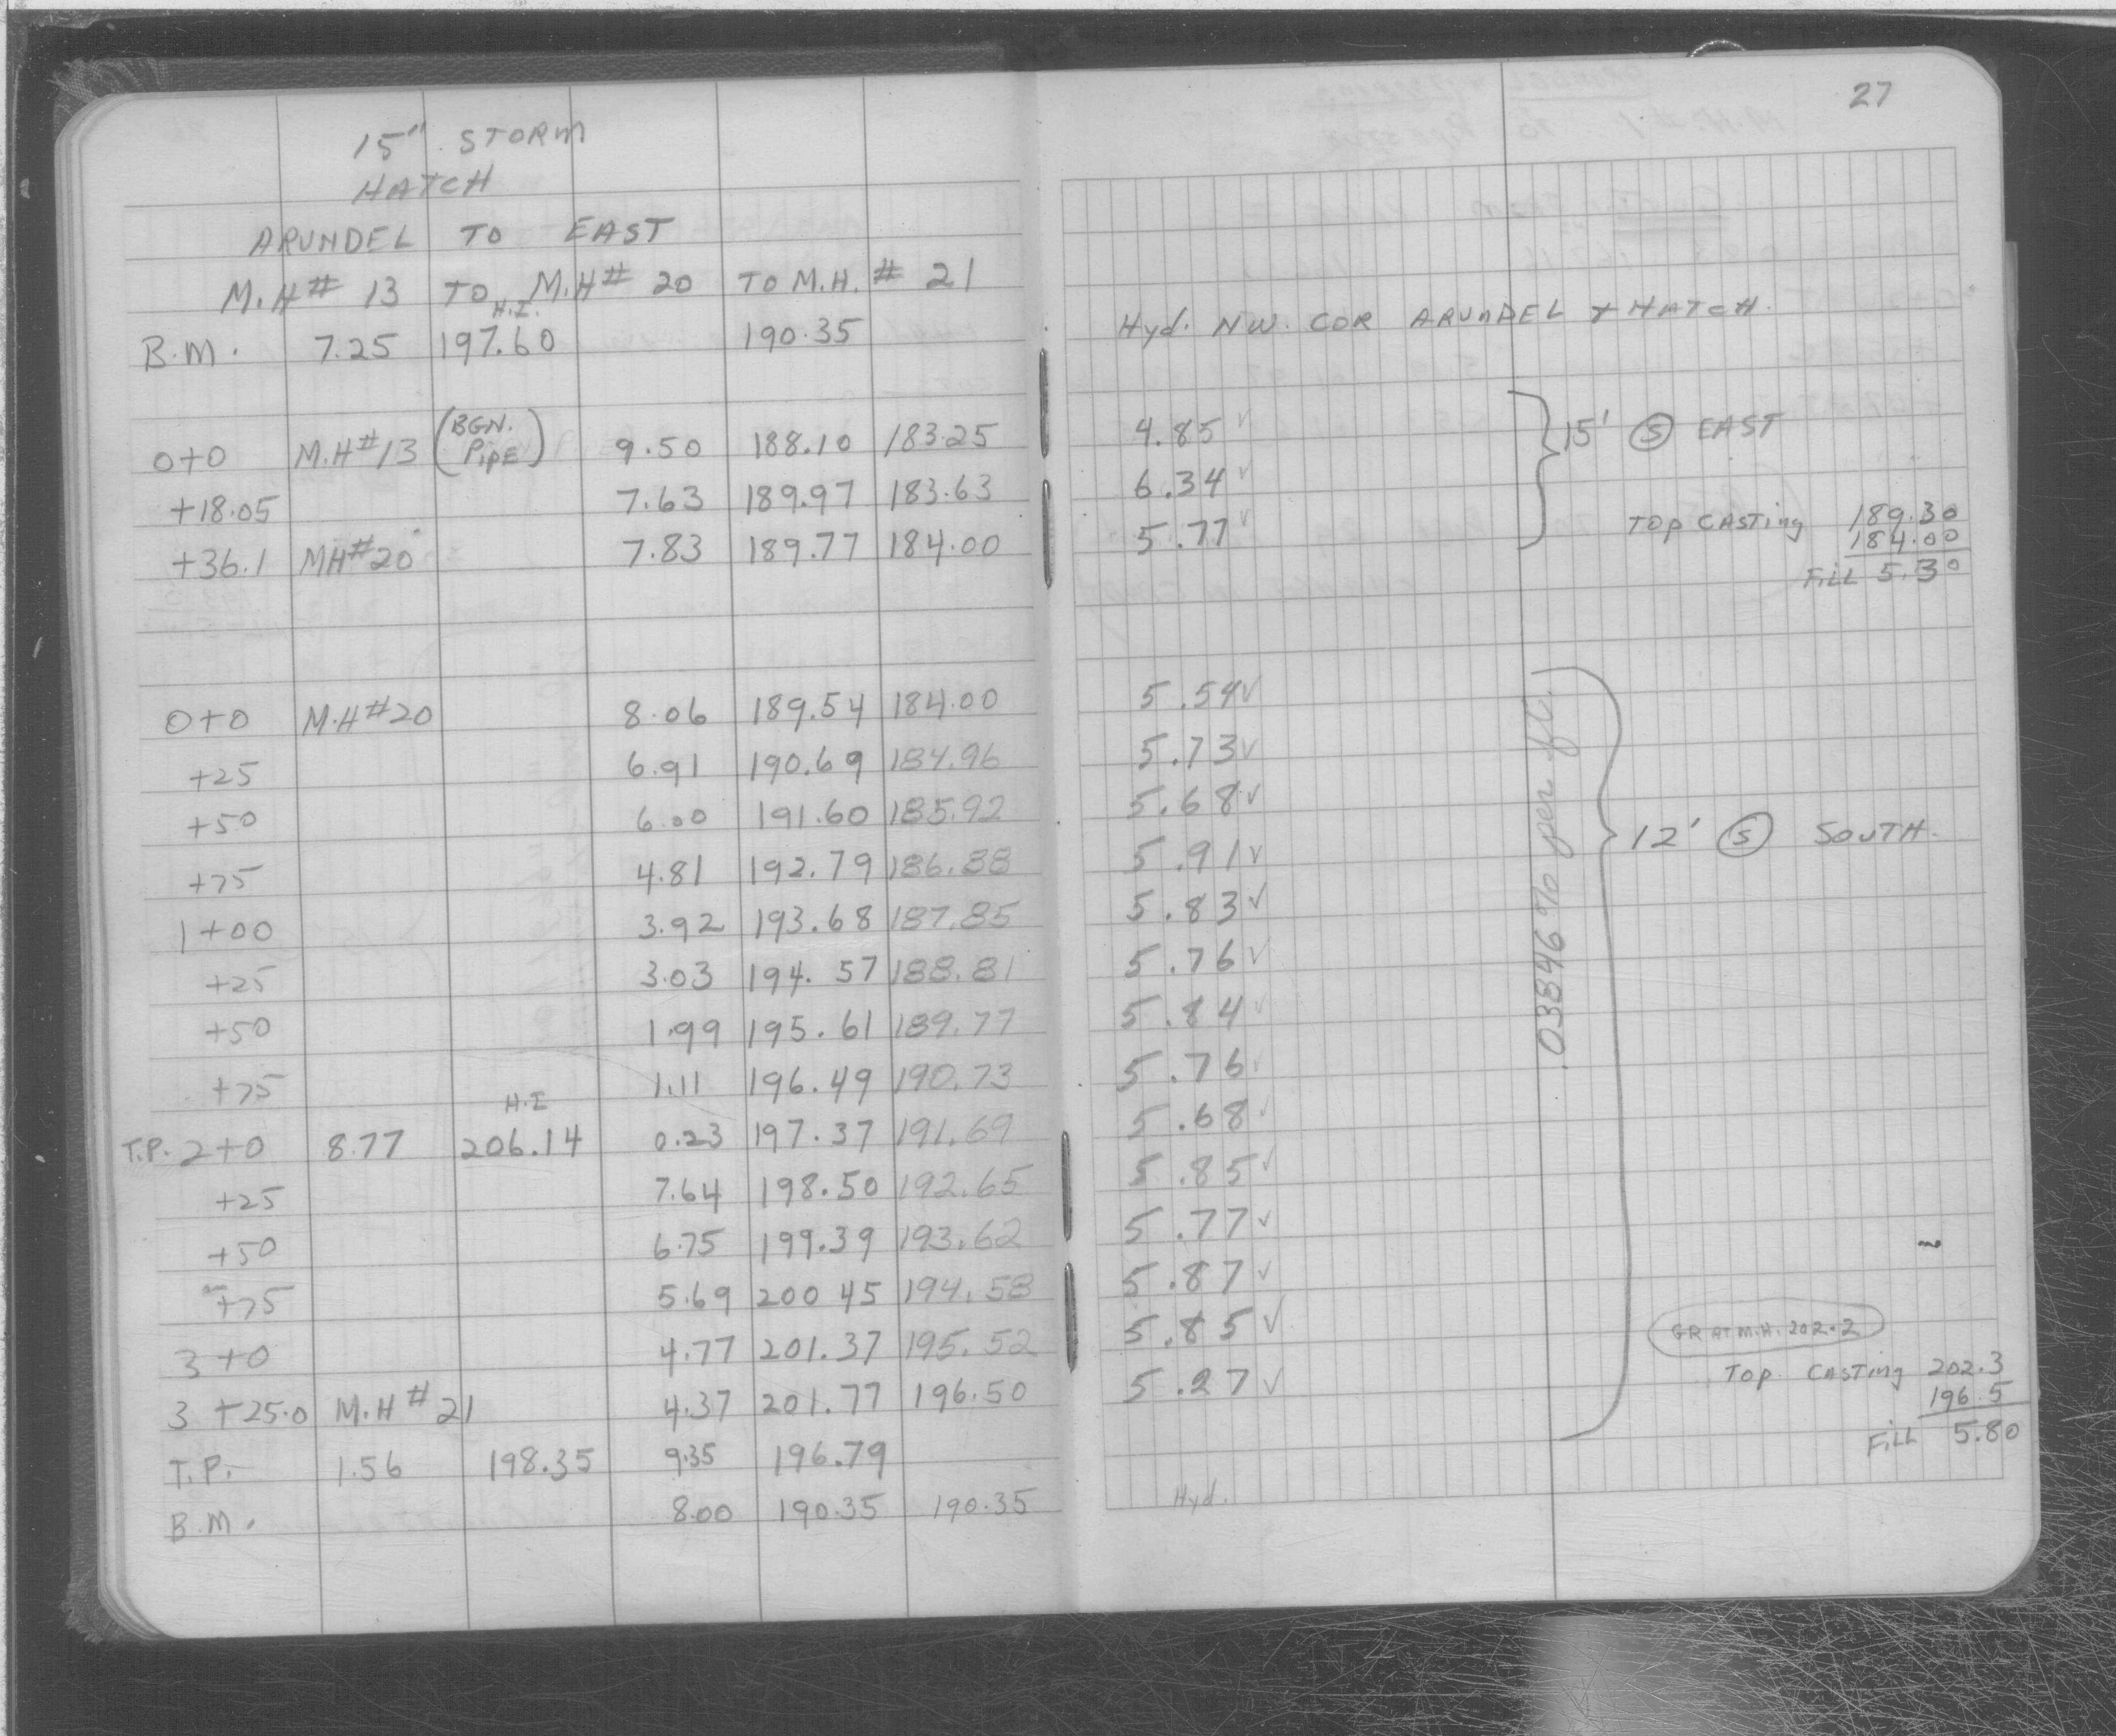 27
15" STORM
HATCH
ARUNDEL TO EAST
M.H# 13 TO M.H# 20 TO M.H. # 21
H.I.
B.M. 7.25 197.60 190.35 Hyd. NW. COR ARUNDEL + HATCH.
0+0 M.H#13 (BGN. PIPE) 9.50 188.10 183.25 4.85 ✓ 15' Ⓢ EAST
+18.05 7.63 189.97 183.63 6.34 ✓
+36.1 MH#20 7.83 189.77 184.00 5.77 ✓
TOP CASTING 189.30
184.00
FILL 5.30
0+0 M.H#20 8.06 189.54 184.00 5.54 ✓
+25 6.91 190.69 184.96 5.73 ✓
+50 6.00 191.60 185.92 5.68 ✓
+75 4.81 192.79 186.88 5.91 ✓
12' Ⓢ SOUTH.
.03846 % per ft.
1+00 3.92 193.68 187.85 5.83 ✓
+25 3.03 194.57 188.81 5.76 ✓
+50 1.99 195.61 189.77 5.84 ✓
+75 1.11 196.49 190.73 5.76 ✓
H.I
T.P. 2+0 8.77 206.14 0.23 197.37 191.69 5.68 ✓
+25 7.64 198.50 192.65 5.85 ✓
+50 6.75 199.39 193.62 5.77 ✓
+75 5.69 200 45 194.58 5.87 ✓
3+0 4.77 201.37 195.52 5.85 ✓
GR AT M.H. 202.2
3+25.0 M.H#21 4.37 201.77 196.50 5.27 ✓
TOP CASTING 202.3
196.5
FILL 5.80
T.P. 1.56 198.35 9.35 196.79
B.M. 8.00 190.35 190.35 Hyd.